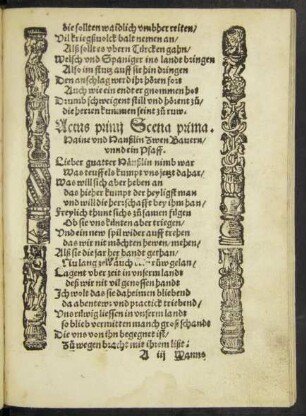 die sollten waidlich vmbher reiten/
Vil kriegßuolck balt nemen an/
Alß sollt es vbern Türcken gahn/
Welsch vnd Spaniger ins lande bringen
Also im sturm auff sie hin dringen
Den anschlag werd ihr hören fort
Auch wie ein endt er gnommen hot
Drumb schweigent still vnd hörent zů/
die herren kummen seint zů ruw.
Actus primi Scena prima.
Haine vnd Hanßlin zwen Bauern/
vnnd ein Pfaff.
Lieber guatter Hänßlin nimb war
Was teuffels kumpt vns jetzt dahar/
Was will sich aber heben an
das hieher kumpt der heyligst man
vnd will die herrschafft bey ihm han/
Freylich thunt sichs zůsamen fügen
Ob sie vns künten aber triegen/
Vnd ein new spil wider auff trehen
das wir nit möchten hewen/mehen/
Alß sie die jar her handt gethan/
Nu lang zeit auch růw gelan/
Lagent vber zeit in vnserm lands
deß wir nit vil genossen handt
Ich wolt das sie daheimen bliebend
da abentewr vnd practick triebend/
Vns růwig liessen in vnserm landt
so blieb vermitten manch groß schande
Die vns von ihn begegnet ist/
Zů wegen bracht mit ihrem list.
A iij Wanns